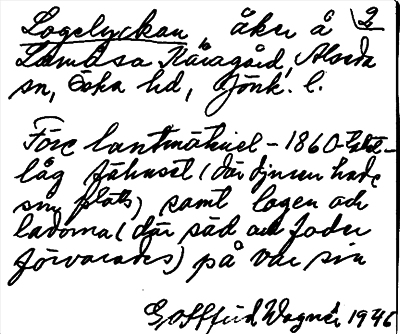 Logelyckan, åker å 2
Lamåsa Käragård, Alseda
sn, Östra hd, Jönk. l.
Före lantmäteriet - 1860-talet -
låg fähuset (där djuren hade
sin plats) samt logen och
ladorna (där säd och foder
förvarades) på var sin
Gottfrid Wagnér 1946